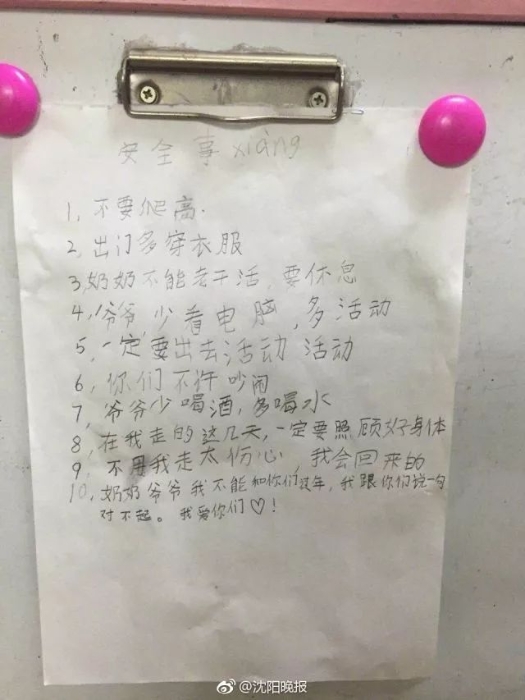 安全事xiàng
1, 不要爬高.
2, 出门多穿衣服
3, 奶奶不能老干活, 要休息
4, 爷爷, 少看电脑, 多活动
5, 一定要出去活动 活动
6, 你们不许吵闹
7, 爷爷少喝酒, 多喝水
8, 在我走的这几天, 一定要照顾好身体
9, 不用我走太伤心, 我会回来的
10, 奶奶爷爷我不能和你们过年, 我跟你们说一句
对不起。我爱你们♡!
@沈阳晚报